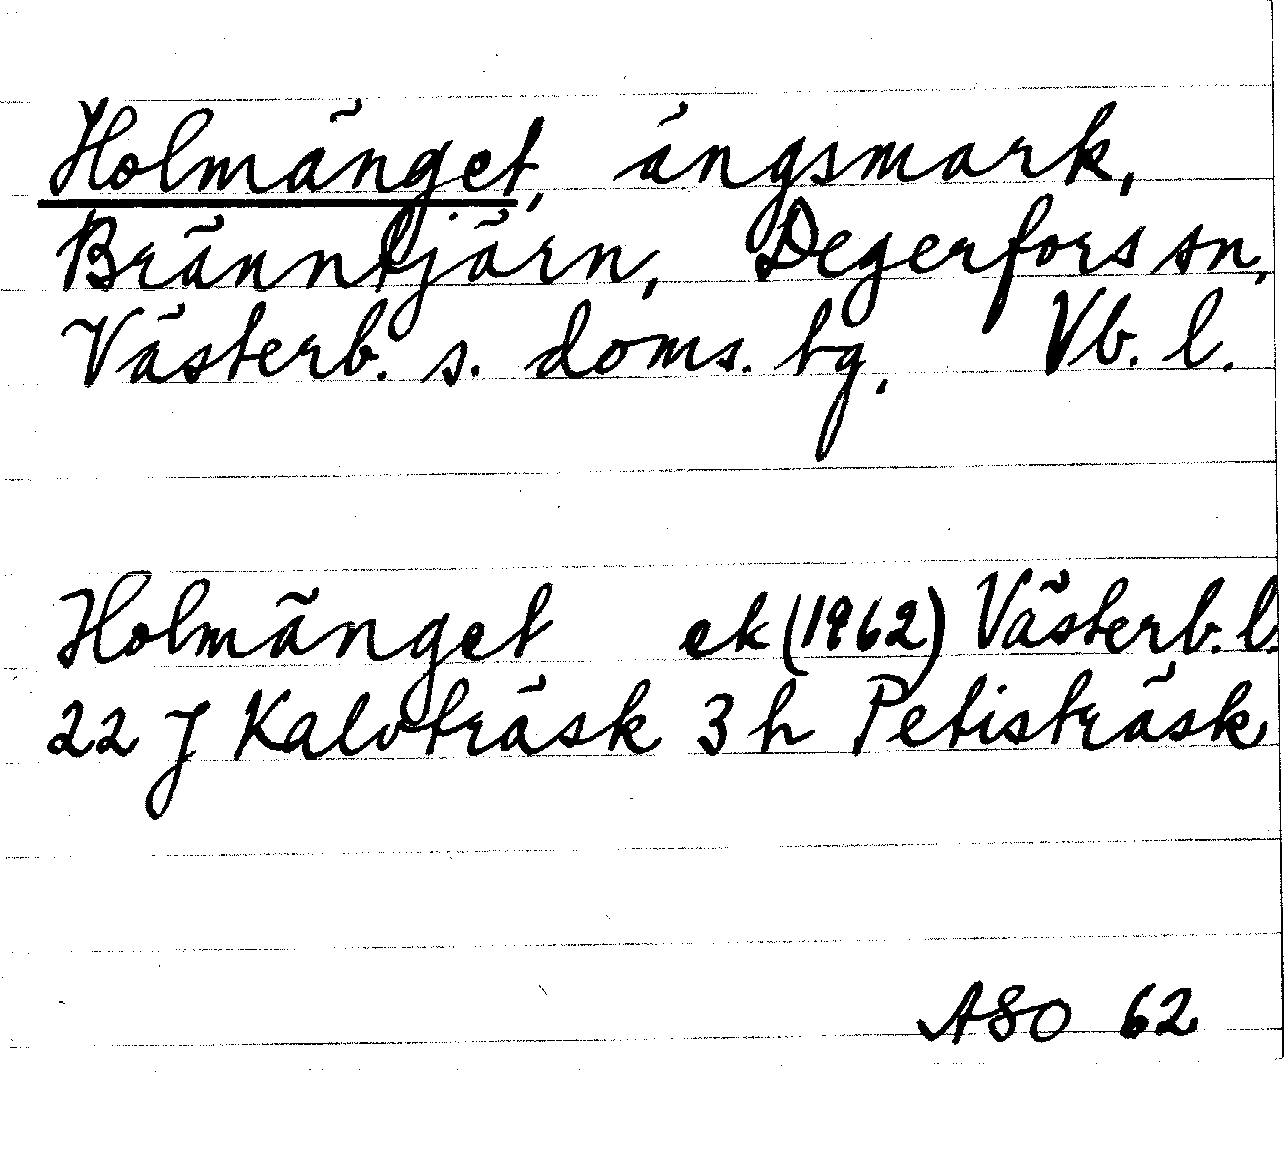 Holmänget, ängsmark,
Bränntjärn, Degerfors sn,
Västerb. s. doms. tg. Vb. l.
Holmänget ek (1962) Västerb. l.
22 J Kalvträsk 3 h Petisträsk
ASO 62